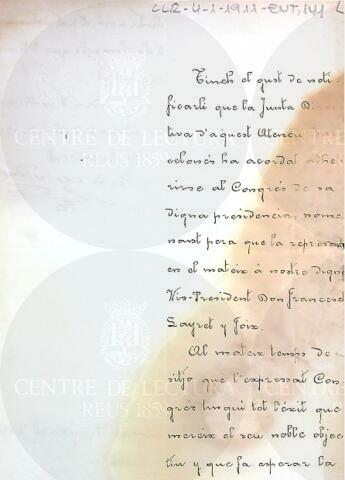 CLR-4-1-1911-ENT,141
Tinch el gust de noti-
ficarli que la Junta Direc
tiva d'aquest Ateneu
celonés ha acordat adhe
rirse al Congrés de sa
digna presidencia, nome
nant pera que la represent
en el mateix á nostre digne
Vis-President Don Francesch
Layret y Foix.
Al mateix temps de-
sitjo que l'expressat Con-
grés tingui tot l'éxit que
mereix el seu noble objec
tiu y que fa esperar la
CENTRE DE LECTURA
REUS 1859
CENTRE DE LECTURA
REUS 1859